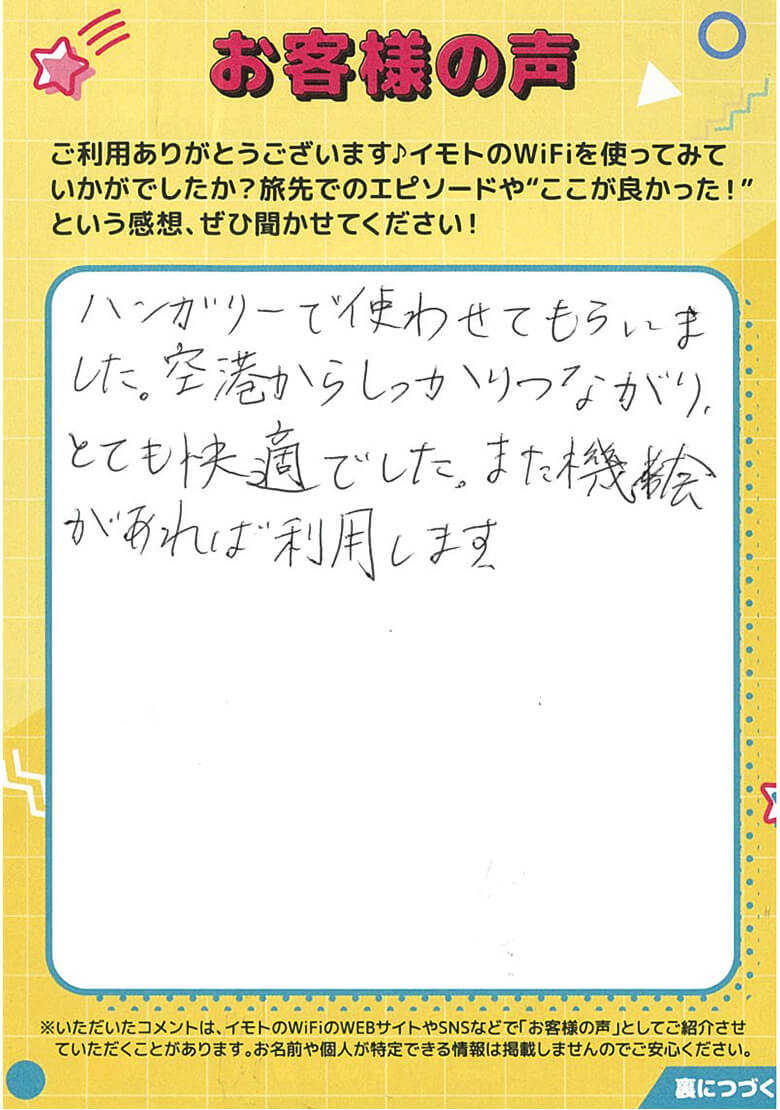 お客様の声
ご利用ありがとうございます♪イモトのWiFiを使ってみて
いかがでしたか？旅先でのエピソードや“ここが良かった！”
という感想、ぜひ聞かせてください！
ハンガリーで使わせてもらいま
した。空港からしっかりつながり、
とても快適でした。また機会
があれば利用します
※いただいたコメントは、イモトのWiFiのWEBサイトやSNSなどで「お客様の声」としてご紹介させ
ていただくことがあります。お名前や個人が特定できる情報は掲載しませんのでご安心ください。
裏につづく